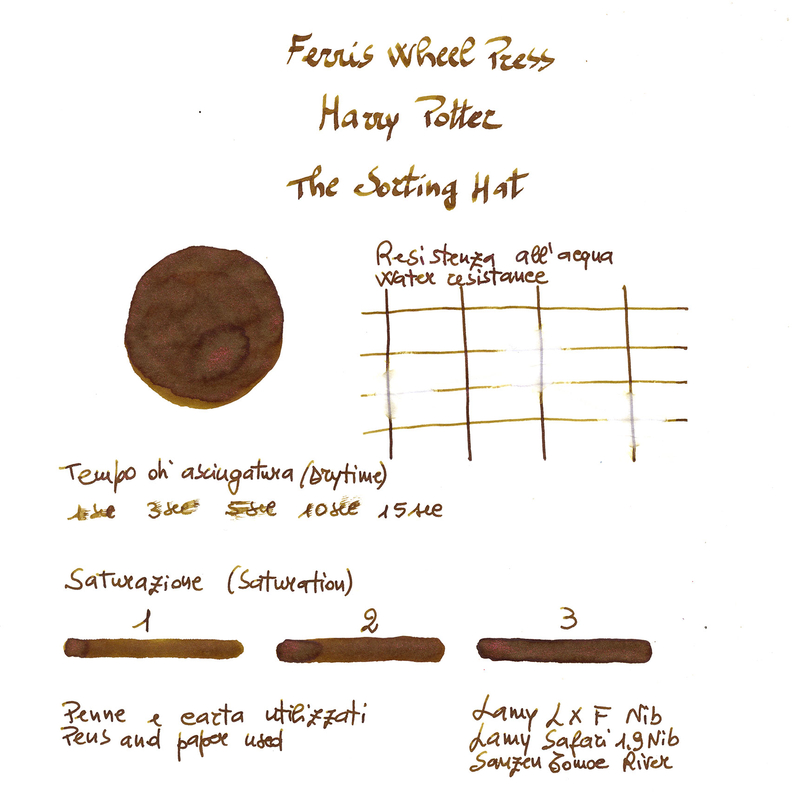 Ferris Wheel Press
Harry Potter
The Sorting Hat
Resistenza all'acqua
Water resistance
Tempo di asciugatura (Drytime)
1sec 3sec 5sec 10sec 15sec
Saturazione (Saturation)
1 2 3
Penne e carta utilizzati
Pens and paper used
Lamy LX F Nib
Lamy Safari 1.9 Nib
Sanzen Tomoe River